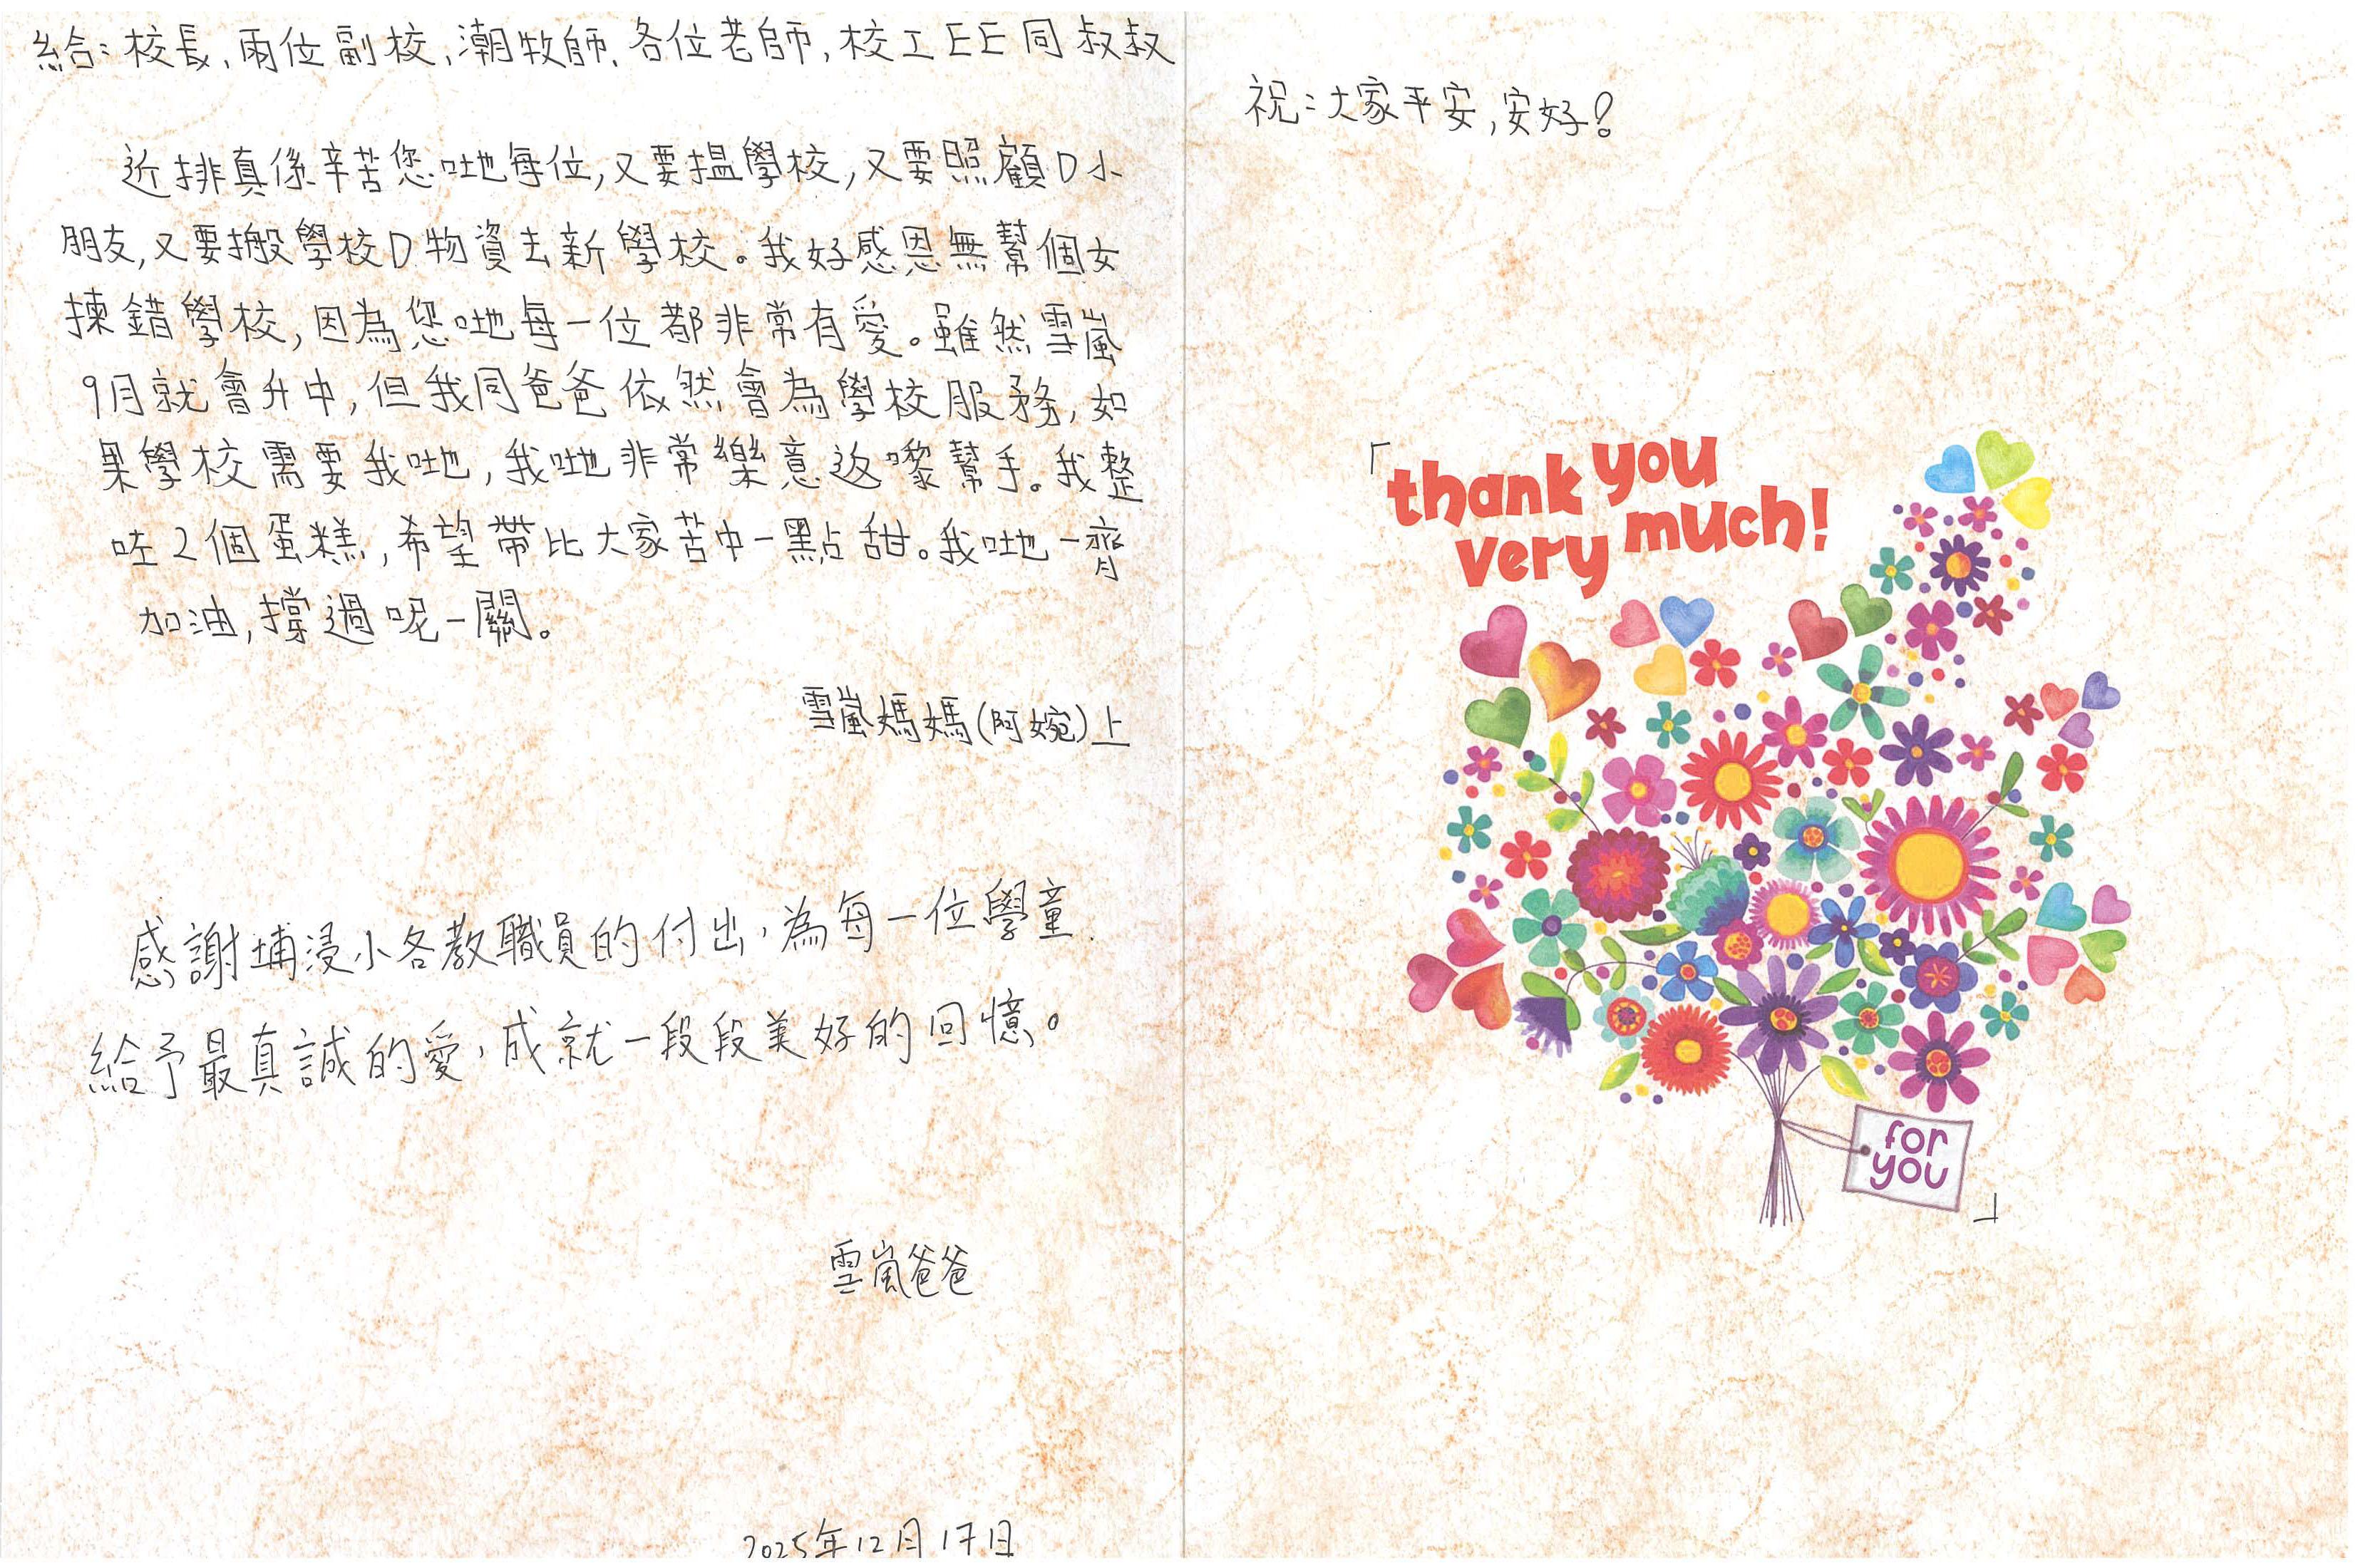 給：校長、兩位副校、潮牧師、各位老師，校工EE同叔叔
近排真係辛苦您哋每位，又要揾學校，又要照顧D小
朋友，又要搬學校D物資去新學校。我好感恩無幫個女
揀錯學校，因為您哋每一位都非常有愛。雖然雪嵐
9月就會升中，但我同爸爸依然會為學校服務，如
果學校需要我哋，我哋非常樂意返嚟幫手。我整
咗2個蛋糕，希望帶比大家苦中一點甜。我哋一齊
加油，撐過呢一關。
雪嵐媽媽(阿婉)上
感謝埔浸小各教職員的付出，為每一位學童
給予最真誠的愛，成就一段段美好的回憶。
雪嵐爸爸
2025年12月17日
祝：大家平安，安好！
「thank you
very much!
for
you」